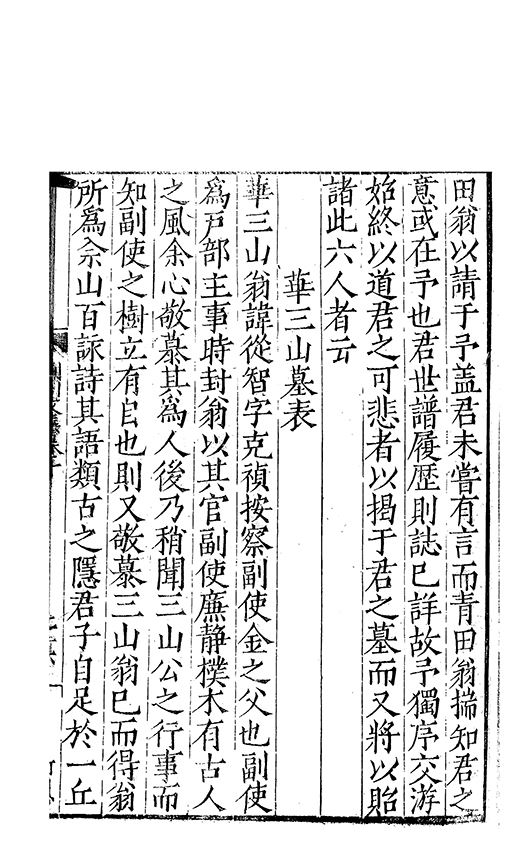 田翁以請于予盖君未嘗有言而青田翁揣知君之
意或在予也君世譜履歷則誌已詳故予獨序交游
始終以道君之可悲者以揭于君之墓而又將以貽
諸此六人者云
華三山墓表
華三山翁諱從智字克禎按察副使金之父也副使
爲戸部主事時封翁以其官副使亷静樸木有古人
之風余心敬慕其爲人後乃稍聞三山公之行事而
知副使之樹立有自也則又敬慕三山翁已而得翁
所爲佘山百詠詩其語類古之隱君子自足於一丘